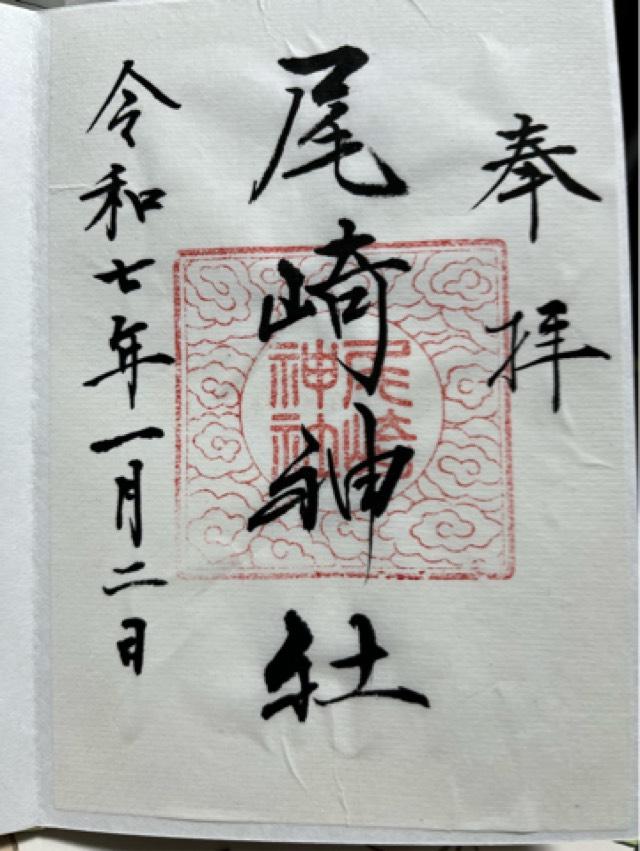 奉拝
尾崎神社
尾崎
神社
令和七年一月二日